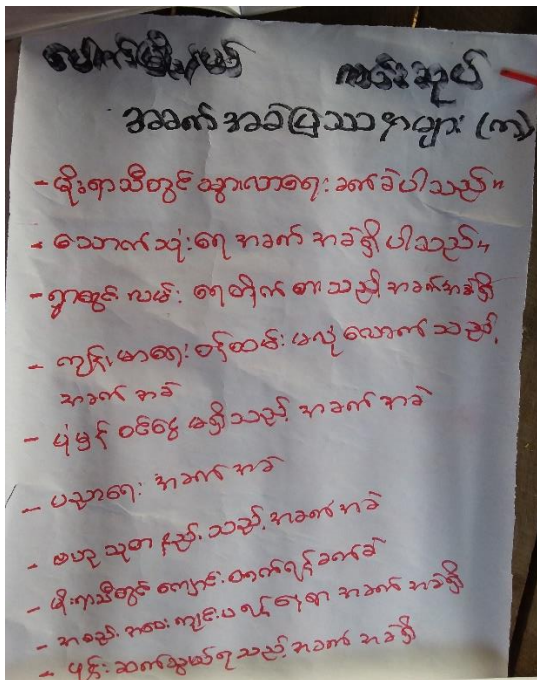 ပေါက်မြို့နယ် ကင်းအုပ်
အခက်အခဲပြဿနာများ (က)
- မိုးရာသီတွင် သွားလာရေး ခက်ခဲပါသည်။
- သောက်သုံးရေ အခက် အခဲရှိပါသည်။
- ရွာတွင်းလမ်း ရေတိုက်စားသည့် အခက်အခဲရှိ
- ကျန်းမာရေး ဝန်ထမ်း မလုံလောက်သည့်
အခက် အခဲ
- ပုံမှန် ဝင်ငွေ မရှိသည့် အခက် အခဲ
- ပညာရေး အခက် အခဲ
- ဗဟုသုတ နည်းသည့် အခက် အခဲ
- မိုးရာသီတွင် ကျောင်းတက်ရန် ခက်ခဲ
- အစည်းအဝေး ကျင်းပရန် နေရာ အခက် အခဲရှိ
- ဖုန်းဆက်သွယ်ရသည့် အခက် အခဲရှိ